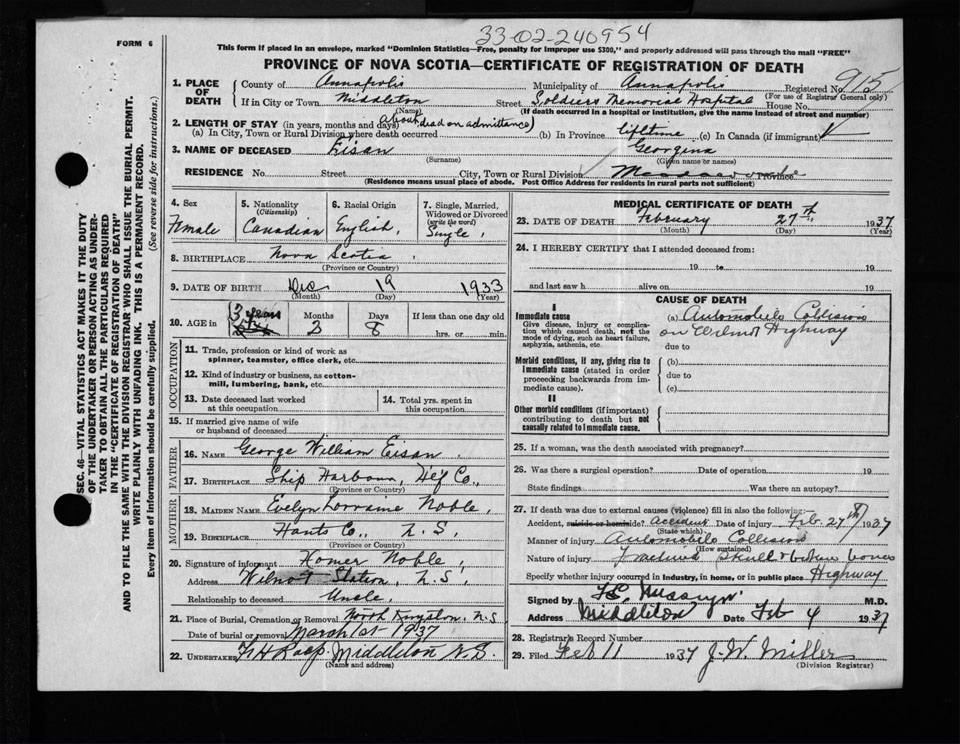 33-02-240954
FORM 6
This form if placed in an envelope, marked "Dominion Statistics—Free, penalty for improper use $300," and properly addressed will pass through the mail "FREE"
PROVINCE OF NOVA SCOTIA—CERTIFICATE OF REGISTRATION OF DEATH
1. PLACE OF DEATH
County of Annapolis Municipality of Annapolis Registered No. 915
(For use of Registrar General only)
If in City or Town Middleton Street Soldiers Memorial Hospital House No.
(Name) (If death occurred in a hospital or institution, give the name instead of street and number)
2. LENGTH OF STAY (in years, months and days) about dead on admittance)
(a) In City, Town or Rural Division where death occurred (b) In Province lifetime (c) In Canada (if immigrant)
3. NAME OF DECEASED Eisan Georgina
(Surname) (Given name or names)
RESIDENCE No. Street City, Town or Rural Division Province
(Residence means usual place of abode. Post Office Address for residents in rural parts not sufficient)
4. Sex
Female
5. Nationality
(Citizenship)
Canadian
6. Racial Origin
English,
7. Single, Married, Widowed or Divorced
(write the word)
Single,
8. BIRTHPLACE Nova Scotia
(Province or Country)
9. DATE OF BIRTH Dec 19 1933
(Month) (Day) (Year)
10. AGE in 3 years Months 2 Days 8 If less than one day old
hrs. or min.
OCCUPATION
11. Trade, profession or kind of work as
spinner, teamster, office clerk, etc.
12. Kind of industry or business, as cotton-
mill, lumbering, bank, etc.
13. Date deceased last worked
at this occupation
14. Total yrs. spent in
this occupation
15. If married give name of wife
or husband of deceased
FATHER
16. NAME George William Eisan
17. BIRTHPLACE Ship Harbour, Hfx Co.,
(Province or Country)
MOTHER
18. MAIDEN NAME Evelyn Lorraine Noble,
19. BIRTHPLACE Hants Co., N.S.
(Province or Country)
20. Signature of informant Homer Noble,
Address Wilmot Station, N.S.
Relationship to deceased Uncle.
21. Place of Burial, Cremation or Removal North Kingston, N.S
Date of burial or removal March 1st 1937
22. UNDERTAKER Middleton N.S.
(Name and address)
MEDICAL CERTIFICATE OF DEATH
23. DATE OF DEATH February 27th 1937
(Month) (Day) (Year)
24. I HEREBY CERTIFY that I attended deceased from:
19 to 19
and last saw h alive on 19
CAUSE OF DEATH
I
Immediate cause
Give disease, injury or complica-
tion which caused death, not the
mode of dying, such as heart failure,
asphyxia, asthenia, etc.
(a) Automobile Collision
on Wilmot Highway
due to
Morbid conditions, if any, giving rise to
immediate cause (stated in order
proceeding backwards from im-
mediate cause).
(b)
due to
(c)
II
Other morbid conditions (if important)
contributing to death but not
causally related to immediate cause.
25. If a woman, was the death associated with pregnancy?
26. Was there a surgical operation? Date of operation 19
State findings Was there an autopsy?
27. If death was due to external causes (violence) fill in also the following:
Accident, suicide or homicide? accident Date of injury Feb. 27th 1937
(State which)
Manner of injury Automobile Collision
(How sustained)
Nature of injury Fractured Skull & broken bones
Specify whether injury occurred in Industry, in home, or in public place Highway
Signed by M.D.
Address Middleton Date Feb 4 1937
28. Registrar's Record Number
29. Filed Feb 11 1937 J. W. Miller
(Division Registrar)
SEC. 46—VITAL STATISTICS ACT MAKES IT THE DUTY
OF THE UNDERTAKER OR PERSON ACTING AS UNDER-
TAKER TO OBTAIN ALL THE PARTICULARS REQUIRED
IN THE "CERTIFICATE OF REGISTRATION OF DEATH"
AND TO FILE THE SAME WITH THE DIVISION REGISTRAR WHO SHALL ISSUE THE BURIAL PERMIT.
WRITE PLAINLY WITH UNFADING INK. THIS IS A PERMANENT RECORD.
Every item of information should be carefully supplied. (See reverse side for instructions.)